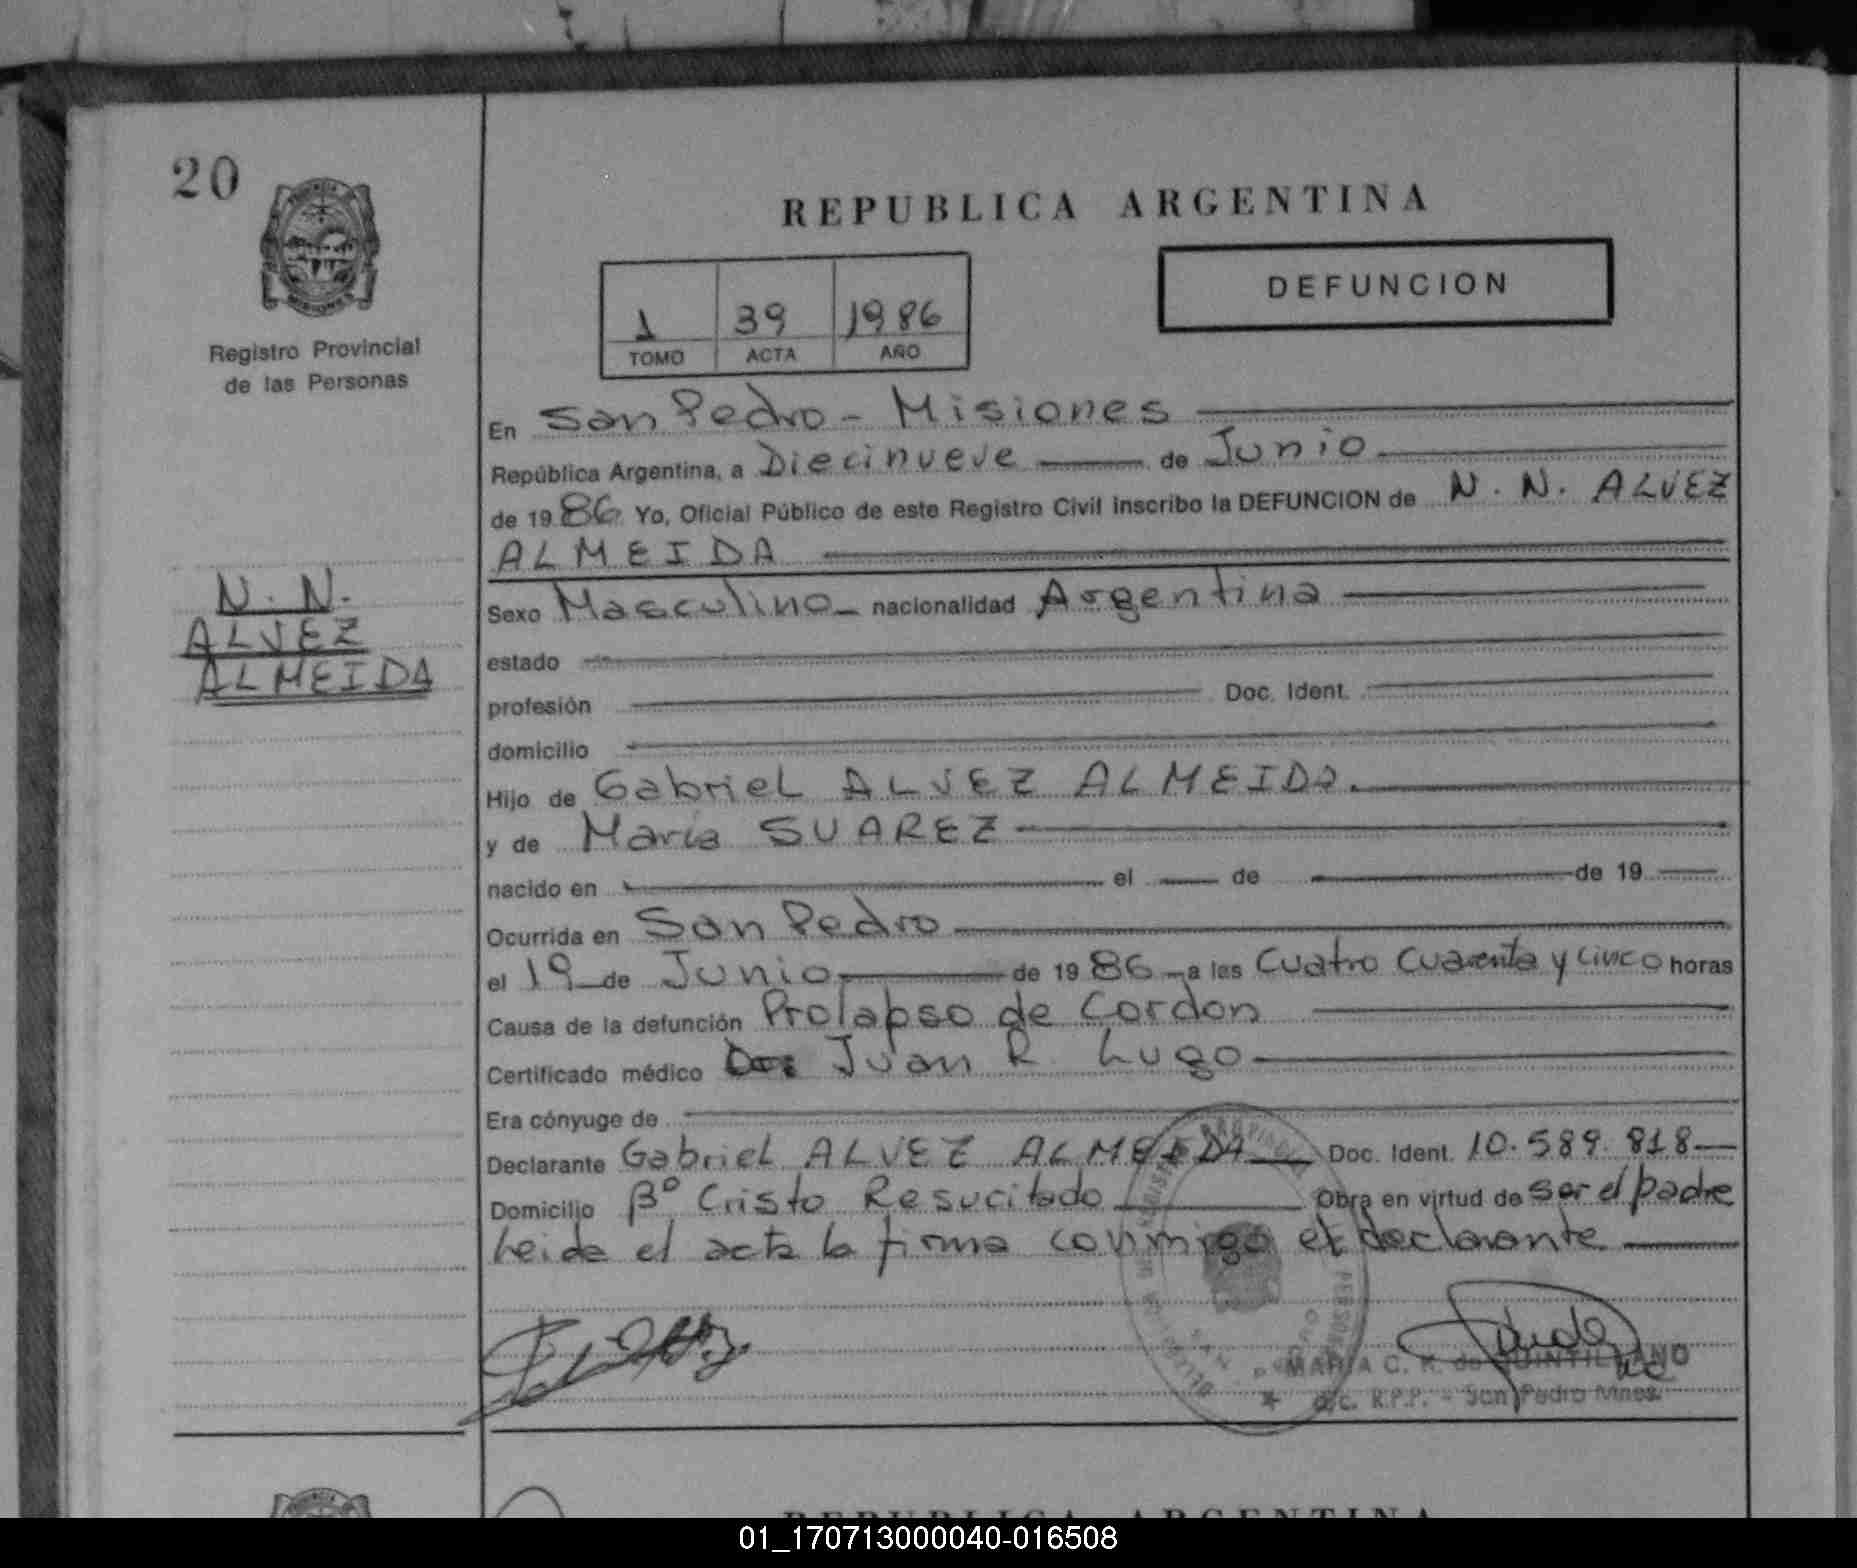 20
Registro Provincial
de las Personas
N. N.
ALVEZ
ALMEIDA
REPUBLICA ARGENTINA
DEFUNCION
1 39 1986
TOMO ACTA AÑO
En San Pedro - Misiones
República Argentina, a Diecinueve de Junio
de 1986 Yo, Oficial Público de este Registro Civil inscribo la DEFUNCION de N. N. ALVEZ
ALMEIDA
Sexo Masculino nacionalidad Argentina
estado
profesión Doc. Ident.
domicilio
Hijo de Gabriel ALVEZ ALMEIDA.
y de María SUAREZ
nacido en el de de 19
Ocurrida en San Pedro
el 19 de Junio de 1986 a las Cuatro Cuarenta y Cinco horas
Causa de la defunción Prolapso de Cordon
Certificado médico Dr: Juan R. Lugo
Era cónyuge de
Declarante Gabriel ALVEZ ALMEIDA Doc. Ident. 10.589.818
Domicilio Bº Cristo Resucitado Obra en virtud de ser el padre
Leida el acta la firma conmigo el declarante
MARIA C. K. de QUINTILIANO
R.P.P. - San Pedro Mnes.
REPUBLICA ARGENTINA
01_170713000040-016508